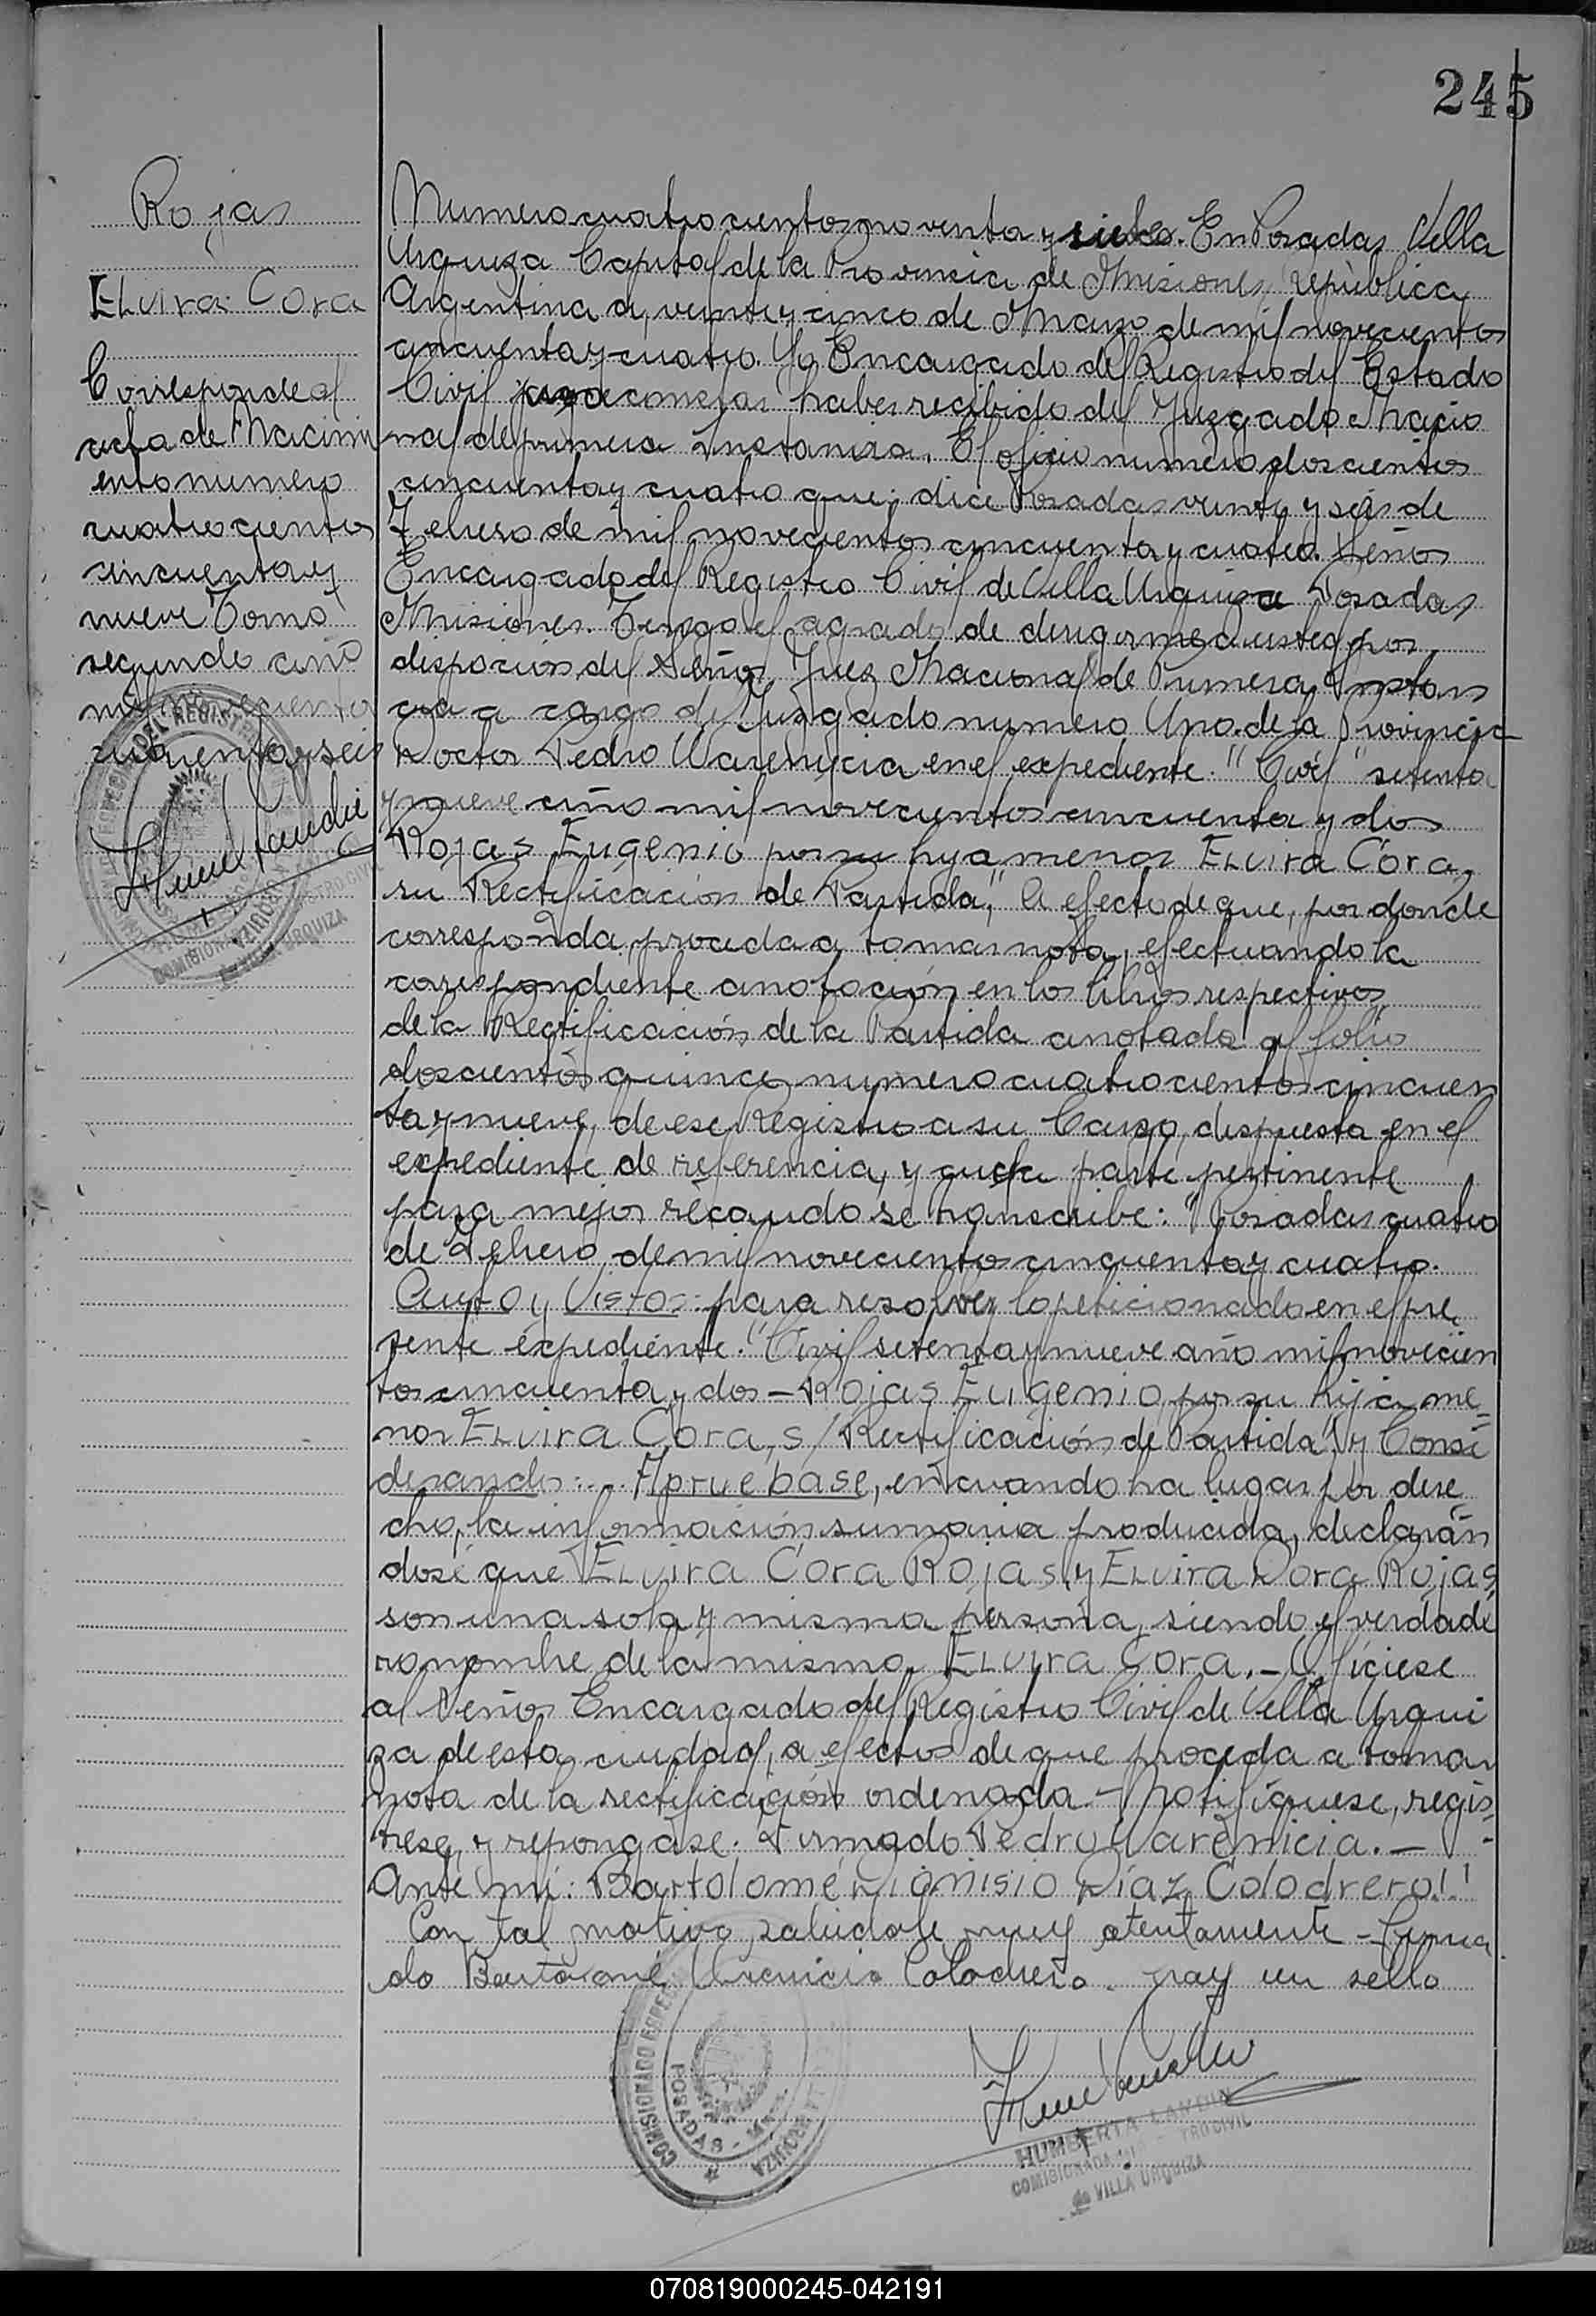 245
Rojas
Elvira Cora
Corresponde al
acta de Nacimi
ento numero
cuatrocientos
cincuenta y
nueve Tomo
segundo año
mil novecientos
cuarenta y seis
Numero cuatrocientos noventa y siete. En Posadas Villa
Urquiza Capital de la Provincia de Misiones, República
Argentina a, veinte y cinco de Marzo de mil novecientos
cincuenta y cuatro. Yo Encargado del Registro del Estado
Civil hago constar haber recibido del Juzgado Nacio
nal de primera Instancia. El oficio numero doscientos
cincuenta y cuatro que; dice Posadas veinte y seis de
Febrero de mil novecientos cincuenta y cuatro. Señor
Encargado del Registro Civil de Villa Urquiza Posadas
Misiones. Tengo el agrado de dirigirme a usted por
disposición del Señor Juez Nacional de Primera Instan
cia a cargo del Juzgado numero Uno de la Provincia
Doctor Pedro Warenycia en el expediente. "Civil" setenta
y nueve año mil novecientos cincuenta y dos
Rojas Eugenio por su hija menor Elvira Cora,
su Rectificación de Partida," A efecto de que, por donde
corresponda, proceda a tomar nota, efectuando la
correspondiente anotación en los libros respectivos
de la Rectificación de la Partida anotada al folio
doscientos quince, numero cuatrocientos cincuen
ta y nueve, de ese Registro a su Cargo, dispuesta en el
expediente de referencia, y cuya parte pertinente
para mejor recaudo se transcribe: "Posadas cuatro
de Febrero, de mil novecientos cincuenta y cuatro.
Auto y Vistos: para resolver lo peticionado en el pre
sente expediente. "Civil setenta y nueve año mil novecien
tos cincuenta y dos - Rojas Eugenio, por su hija me_
nor Elvira Cora, s/ Rectificación de Partida" y Consi
derando: ... Apruebase, en cuando ha lugar por dere
cho, la información sumaria producida, declarán
dose que Elvira Cora Rojas y Elvira Dora Rojas
son una sola y misma persona, siendo el verdade
ro nombre de la misma, Elvira Cora. - Ofíciese
al Señor Encargado del Registro Civil de Villa Urqui
za de esta ciudad, a efectos de que proceda a tomar
nota de la rectificación ordenada. - Notifíquese, regís
trese, y repongase. Firmado Pedro Warenicia. -
Ante mi: Bartolomé Dionisio Díaz Colodrero!!
Con tal motivo saludale muy atentamente - firma
do Bartolomé Colodrero. Hay un sello
COMISIONADO ESPECIAL
POSADAS - MNES.
URQUIZA
HUMBERTA LANDIN
COMISIONADA REGISTRO CIVIL
de VILLA URQUIZA
070819000245-042191